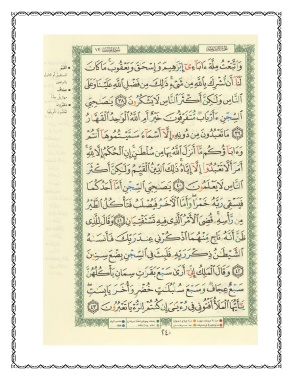 وَاتَّبَعْتُ مِلَّةَ ءَابَاءِى إِبْرَٰهِيمَ وَإِسْحَٰقَ وَيَعْقُوبَ مَا كَانَ
لَنَا أَن نُّشْرِكَ بِاللَّهِ مِن شَىْءٍ ذَٰلِكَ مِن فَضْلِ اللَّهِ عَلَيْنَا وَعَلَى
النَّاسِ وَلَٰكِنَّ أَكْثَرَ النَّاسِ لَا يَشْكُرُونَ ٣٨ يَٰصَٰحِبَىِ
السِّجْنِ ءَأَرْبَابٌ مُّتَفَرِّقُونَ خَيْرٌ أَمِ اللَّهُ الْوَٰحِدُ الْقَهَّارُ
٣٩ مَا تَعْبُدُونَ مِن دُونِهِ إِلَّا أَسْمَاءً سَمَّيْتُمُوهَا أَنتُمْ
وَءَابَاؤُكُم مَّا أَنزَلَ اللَّهُ بِهَا مِن سُلْطَٰنٍ إِنِ الْحُكْمُ إِلَّا لِلَّهِ
أَمَرَ أَلَّا تَعْبُدُوا إِلَّا إِيَّاهُ ذَٰلِكَ الدِّينُ الْقَيِّمُ وَلَٰكِنَّ أَكْثَرَ
النَّاسِ لَا يَعْلَمُونَ ٤٠ يَٰصَٰحِبَىِ السِّجْنِ أَمَّا أَحَدُكُمَا
فَيَسْقِى رَبَّهُ خَمْرًا وَأَمَّا الْءَاخَرُ فَيُصْلَبُ فَتَأْكُلُ الطَّيْرُ
مِن رَّأْسِهِ قُضِىَ الْأَمْرُ الَّذِى فِيهِ تَسْتَفْتِيَانِ ٤١ وَقَالَ لِلَّذِى
ظَنَّ أَنَّهُ نَاجٍ مِّنْهُمَا اذْكُرْنِى عِندَ رَبِّكَ فَأَنسَىٰهُ
الشَّيْطَٰنُ ذِكْرَ رَبِّهِ فَلَبِثَ فِى السِّجْنِ بِضْعَ سِنِينَ
٤٢ وَقَالَ الْمَلِكُ إِنِّى أَرَىٰ سَبْعَ بَقَرَٰتٍ سِمَانٍ يَأْكُلُهُنَّ
سَبْعٌ عِجَافٌ وَسَبْعَ سُنبُلَٰتٍ خُضْرٍ وَأُخَرَ يَابِسَٰتٍ
يَٰأَيُّهَا الْمَلَأُ أَفْتُونِى فِى رُءْيَٰىَ إِن كُنتُمْ لِلرُّءْيَا تَعْبُرُونَ ٤٣
٢٤٠